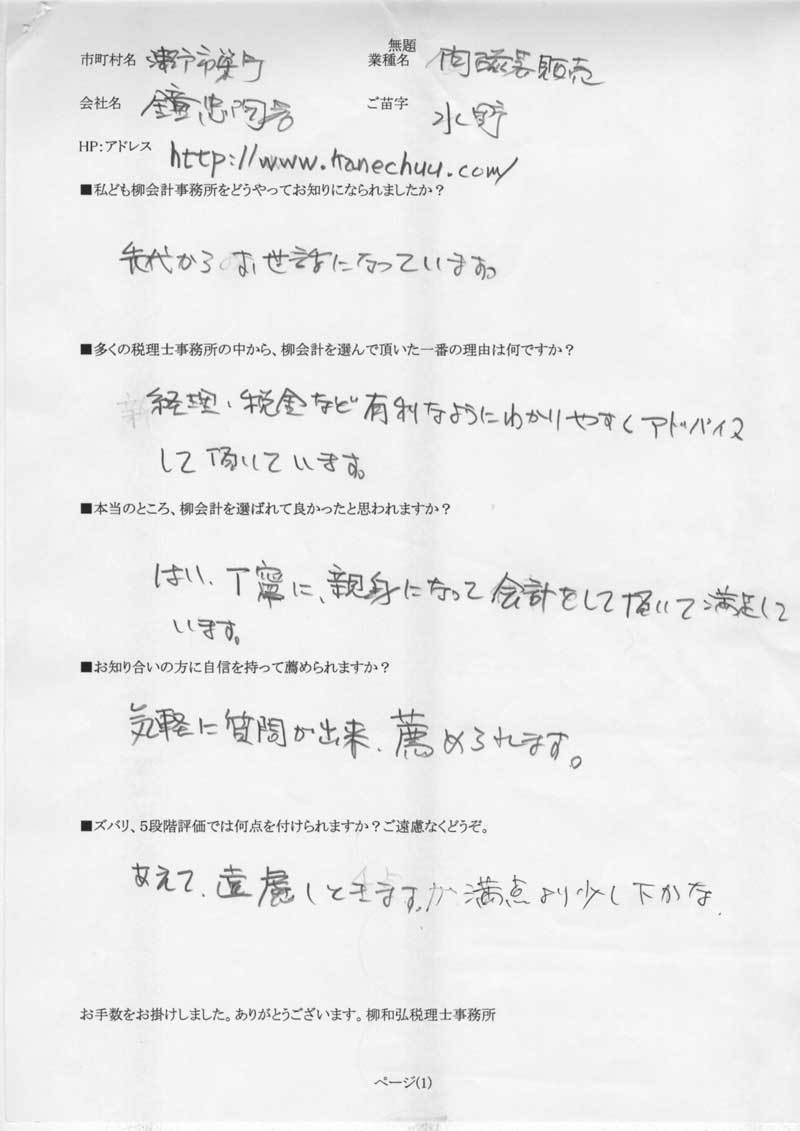 無題
市町村名 瀬戸市栄町 業種名 陶磁器販売
会社名 鐘忠陶器 ご苗字 水野
HP:アドレス http://www.kanechuu.com/
■私ども柳会計事務所をどうやってお知りになられましたか？
先代からお世話になっています。
■多くの税理士事務所の中から、柳会計を選んで頂いた一番の理由は何ですか？
経理、税金など有利なようにわかりやすくアドバイス
して頂いています。
■本当のところ、柳会計を選ばれて良かったと思われますか？
はい、丁寧に、親身になって会計をして頂いて満足して
います。
■お知り合いの方に自信を持って薦められますか？
気軽に質問が出来、薦められます。
■ズバリ、5段階評価では何点を付けられますか？ご遠慮なくどうぞ。
あえて、遠慮しときます。が満点より少し下かな
お手数をお掛けしました。ありがとうございます。柳和弘税理士事務所
ページ(1)